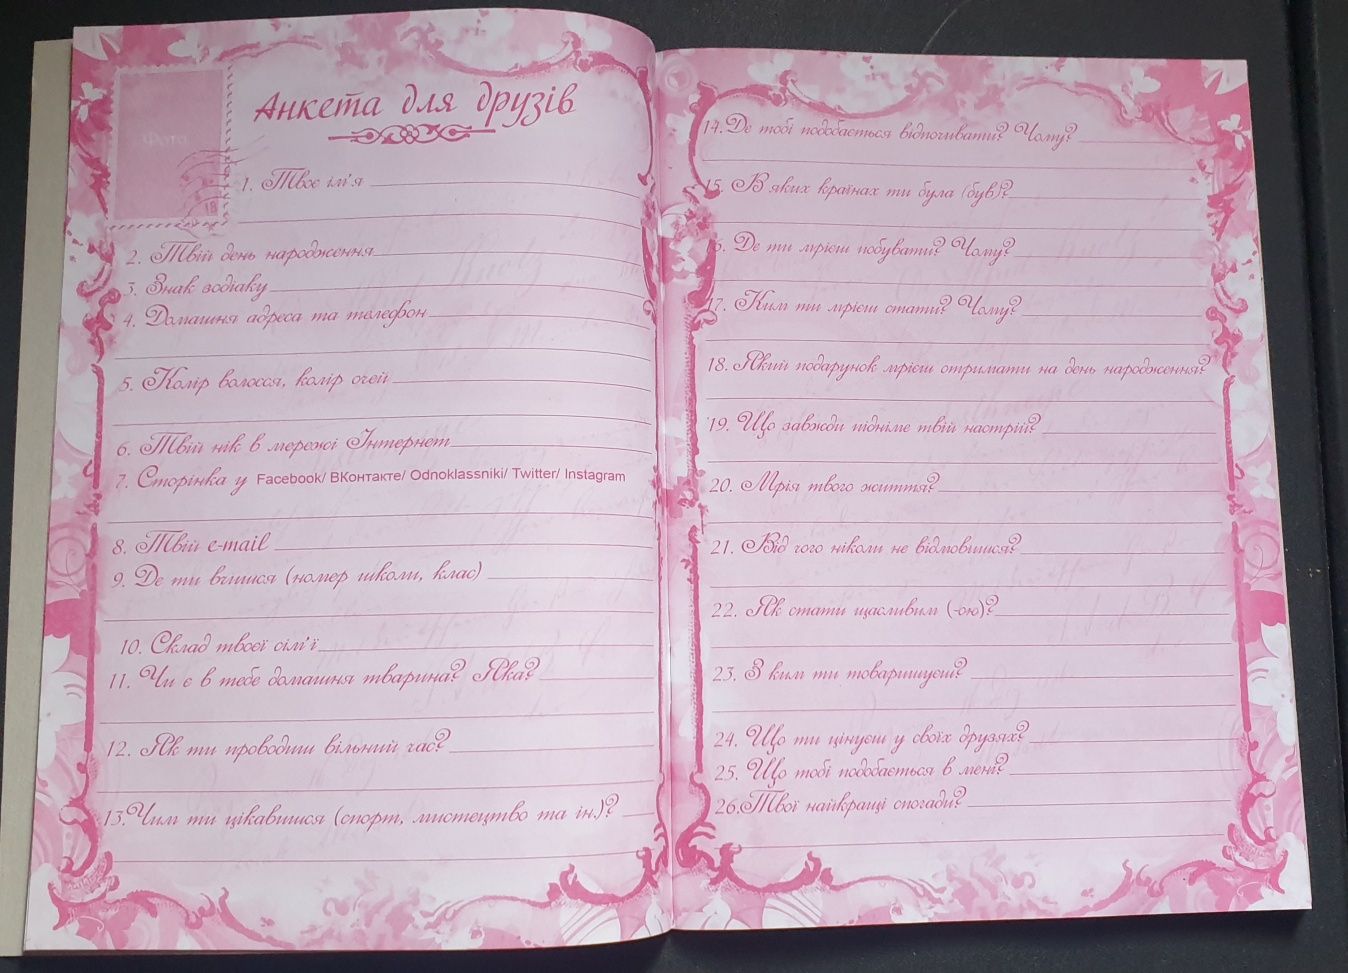 Фото
18
Анкета для друзів
1. Твоє ім'я
2. Твій день народження
3. Знак зодіаку
4. Домашня адреса та телефон
5. Колір волосся, колір очей
6. Твій нік в мережі Інтернет
7. Сторінка у Facebook/ ВКонтакте/ Odnoklassniki/ Twitter/ Instagram
8. Твій e-mail
9. Де ти вчишся (номер школи, клас)
10. Склад твоєї сім'ї
11. Чи є в тебе домашня тварина? Яка?
12. Як ти проводиш вільний час?
13.Чим ти цікавишся (спорт, мистецтво та ін.)?
14.Де тобі подобається відпочивати? Чому?
15. В яких країнах ти була (був)?
16. Де ти мрієш побувати? Чому?
17. Ким ти мрієш стати? Чому?
18. Який подарунок мрієш отримати на день народження?
19. Що завжди підніме твій настрій?
20. Мрія твого життя?
21. Від чого ніколи не відмовишся?
22. Як стати щасливим (-ою)?
23. З ким ти товаришуєш?
24. Що ти цінуєш у своїх друзях?
25. Що тобі подобається в мені?
26.Твої найкращі спогади?